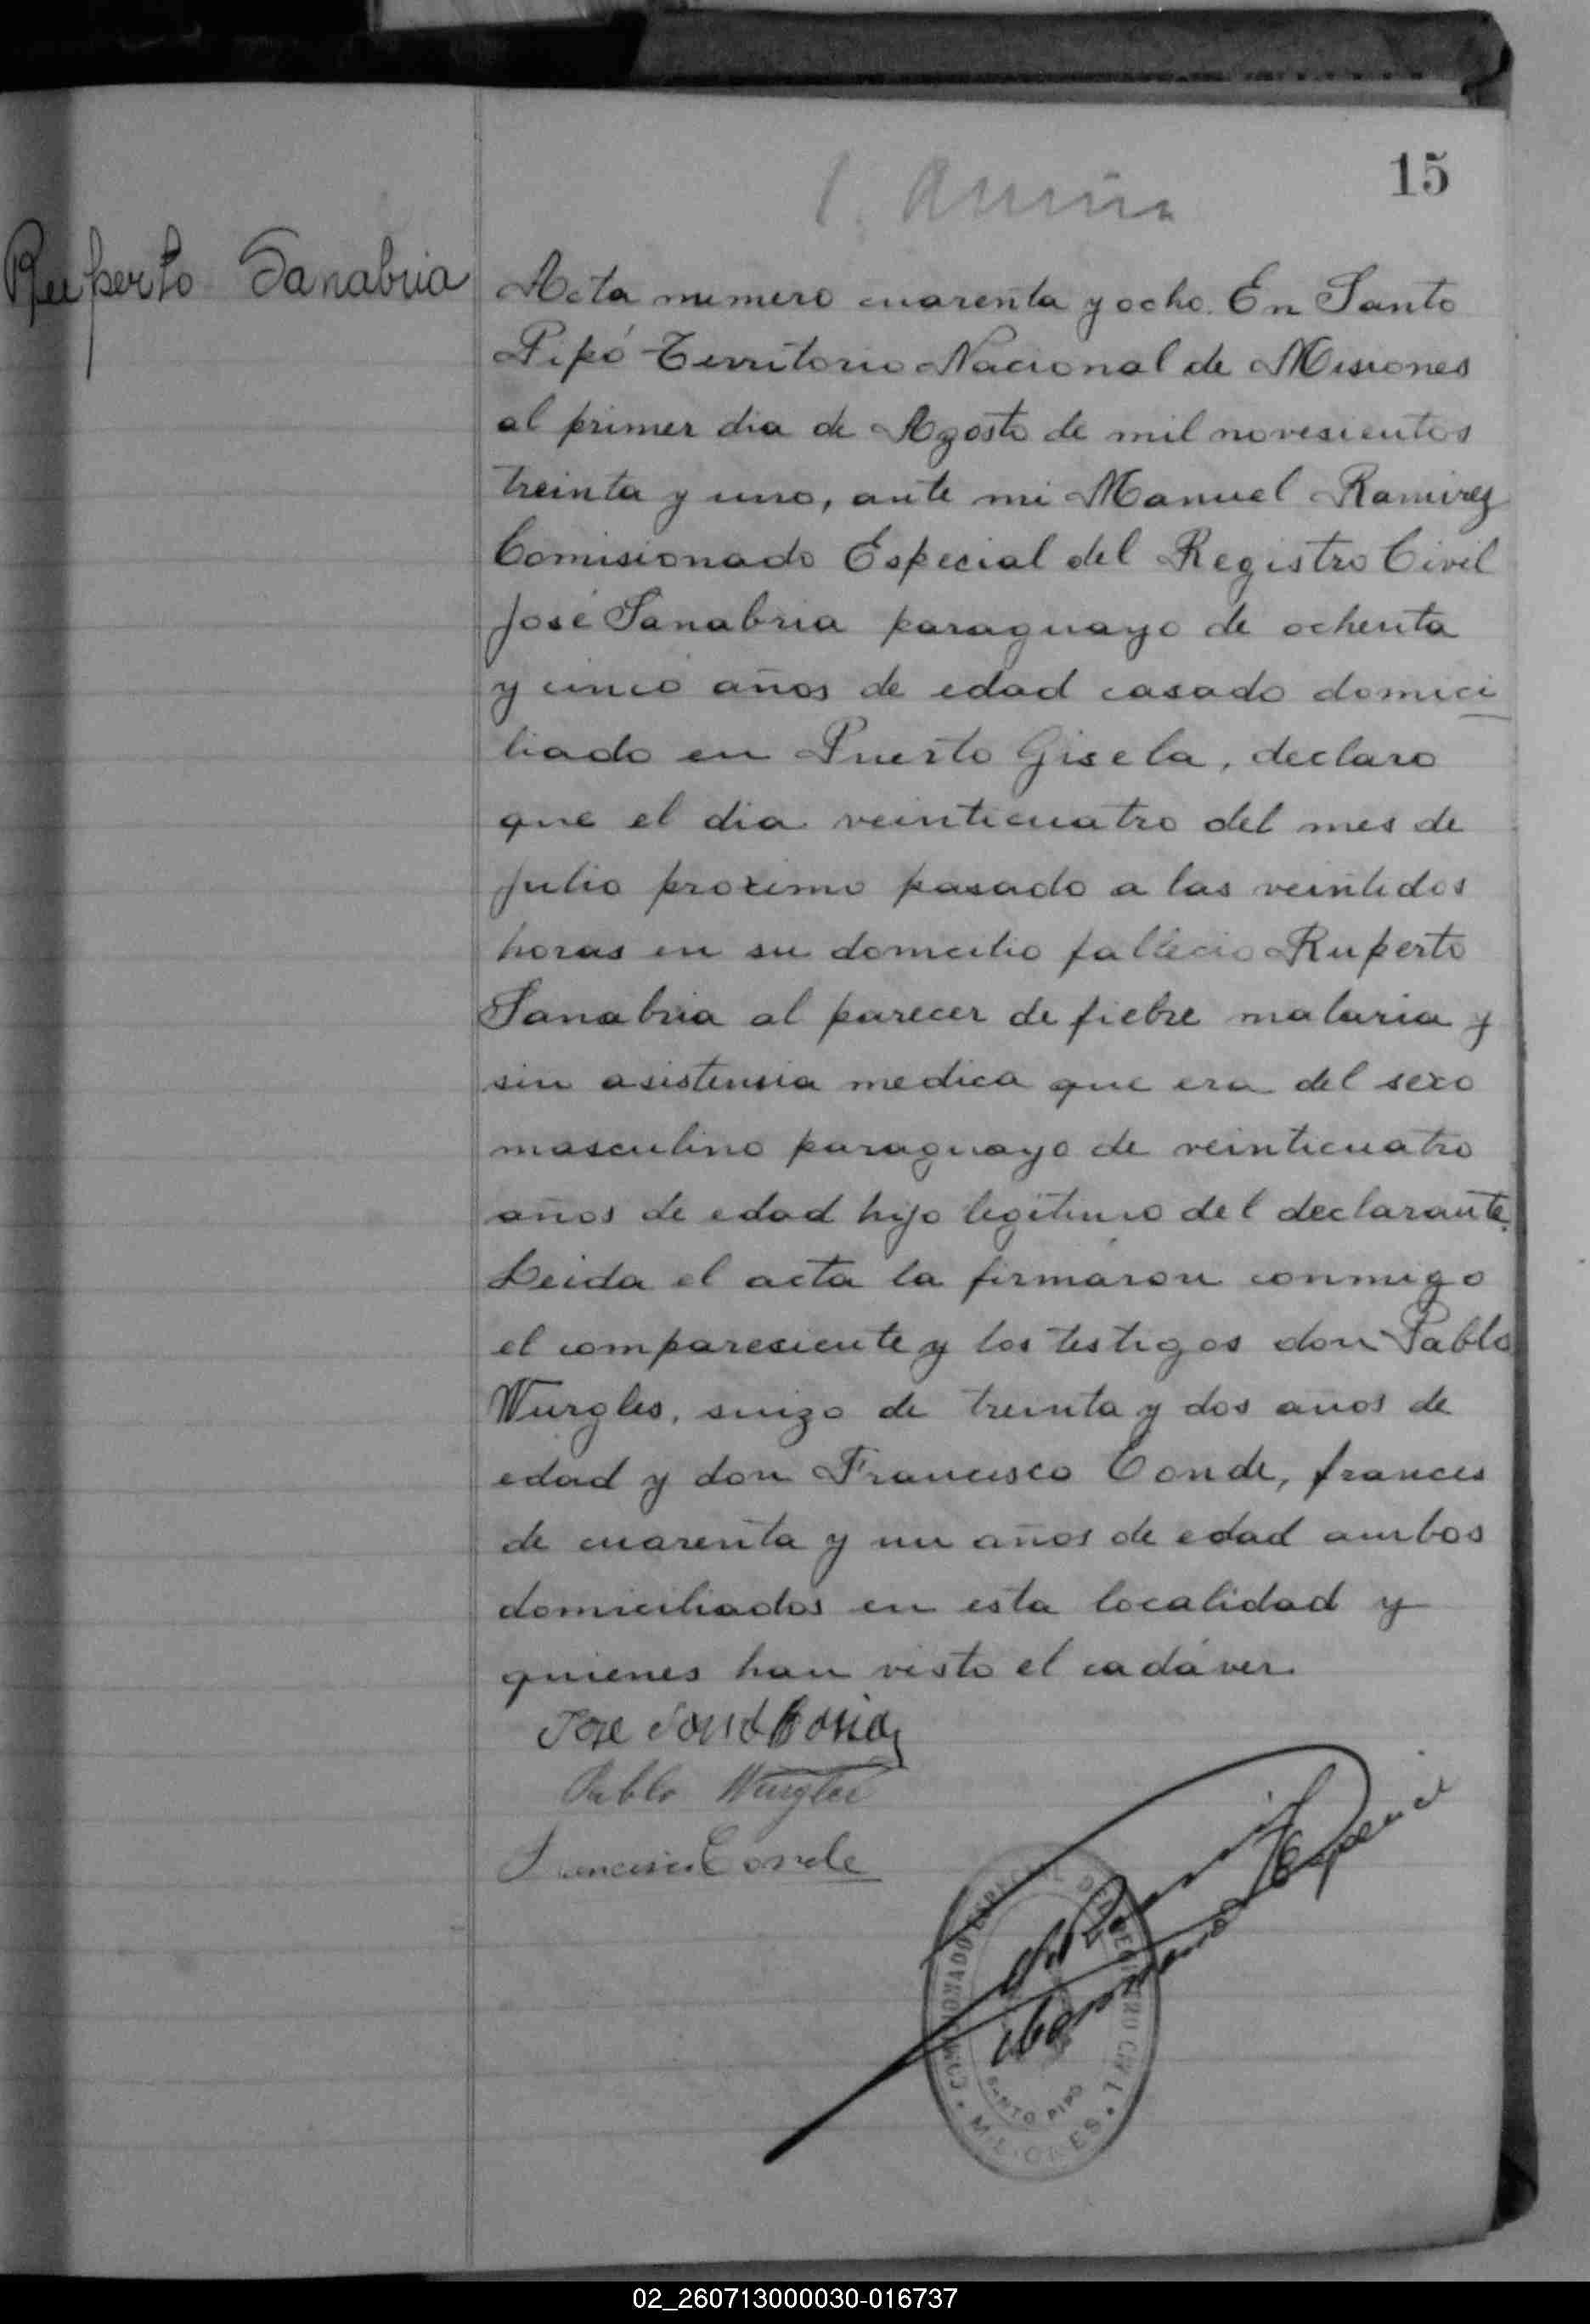 15
Ruperto Sanabria
Acta numero cuarenta y ocho. En Santo
Pipó Territorio Nacional de Misiones
al primer dia de Agosto de mil novesientos
treinta y uno, ante mi Manuel Ramirez
Comisionado Especial del Registro Civil
José Sanabria paraguayo de ochenta
y cinco años de edad casado domici
liado en Puerto Gisela, declaro
que el dia veinticuatro del mes de
Julio proximo pasado a las veintidos
horas en su domicilio fallecio Ruperto
Sanabria al parecer de fiebre malaria y
sin asistensia medica que era del sexo
masculino paraguayo de veinticuatro
años de edad hijo legitimo del declarante.
Leida el acta la firmaron conmigo
el comparesiente y los testigos don Pablo
Wurgles, suizo de treinta y dos años de
edad y don Francisco Conde, frances
de cuarenta y un años de edad ambos
domiciliados en esta localidad y
quienes han visto el cadáver.
Jose Sanabria
Pablo Wurgler
Francisco Conde
COMISIONADO ESPECIAL DEL REGISTRO CIVIL
SANTO PIPO
MISIONES
02_260713000030-016737